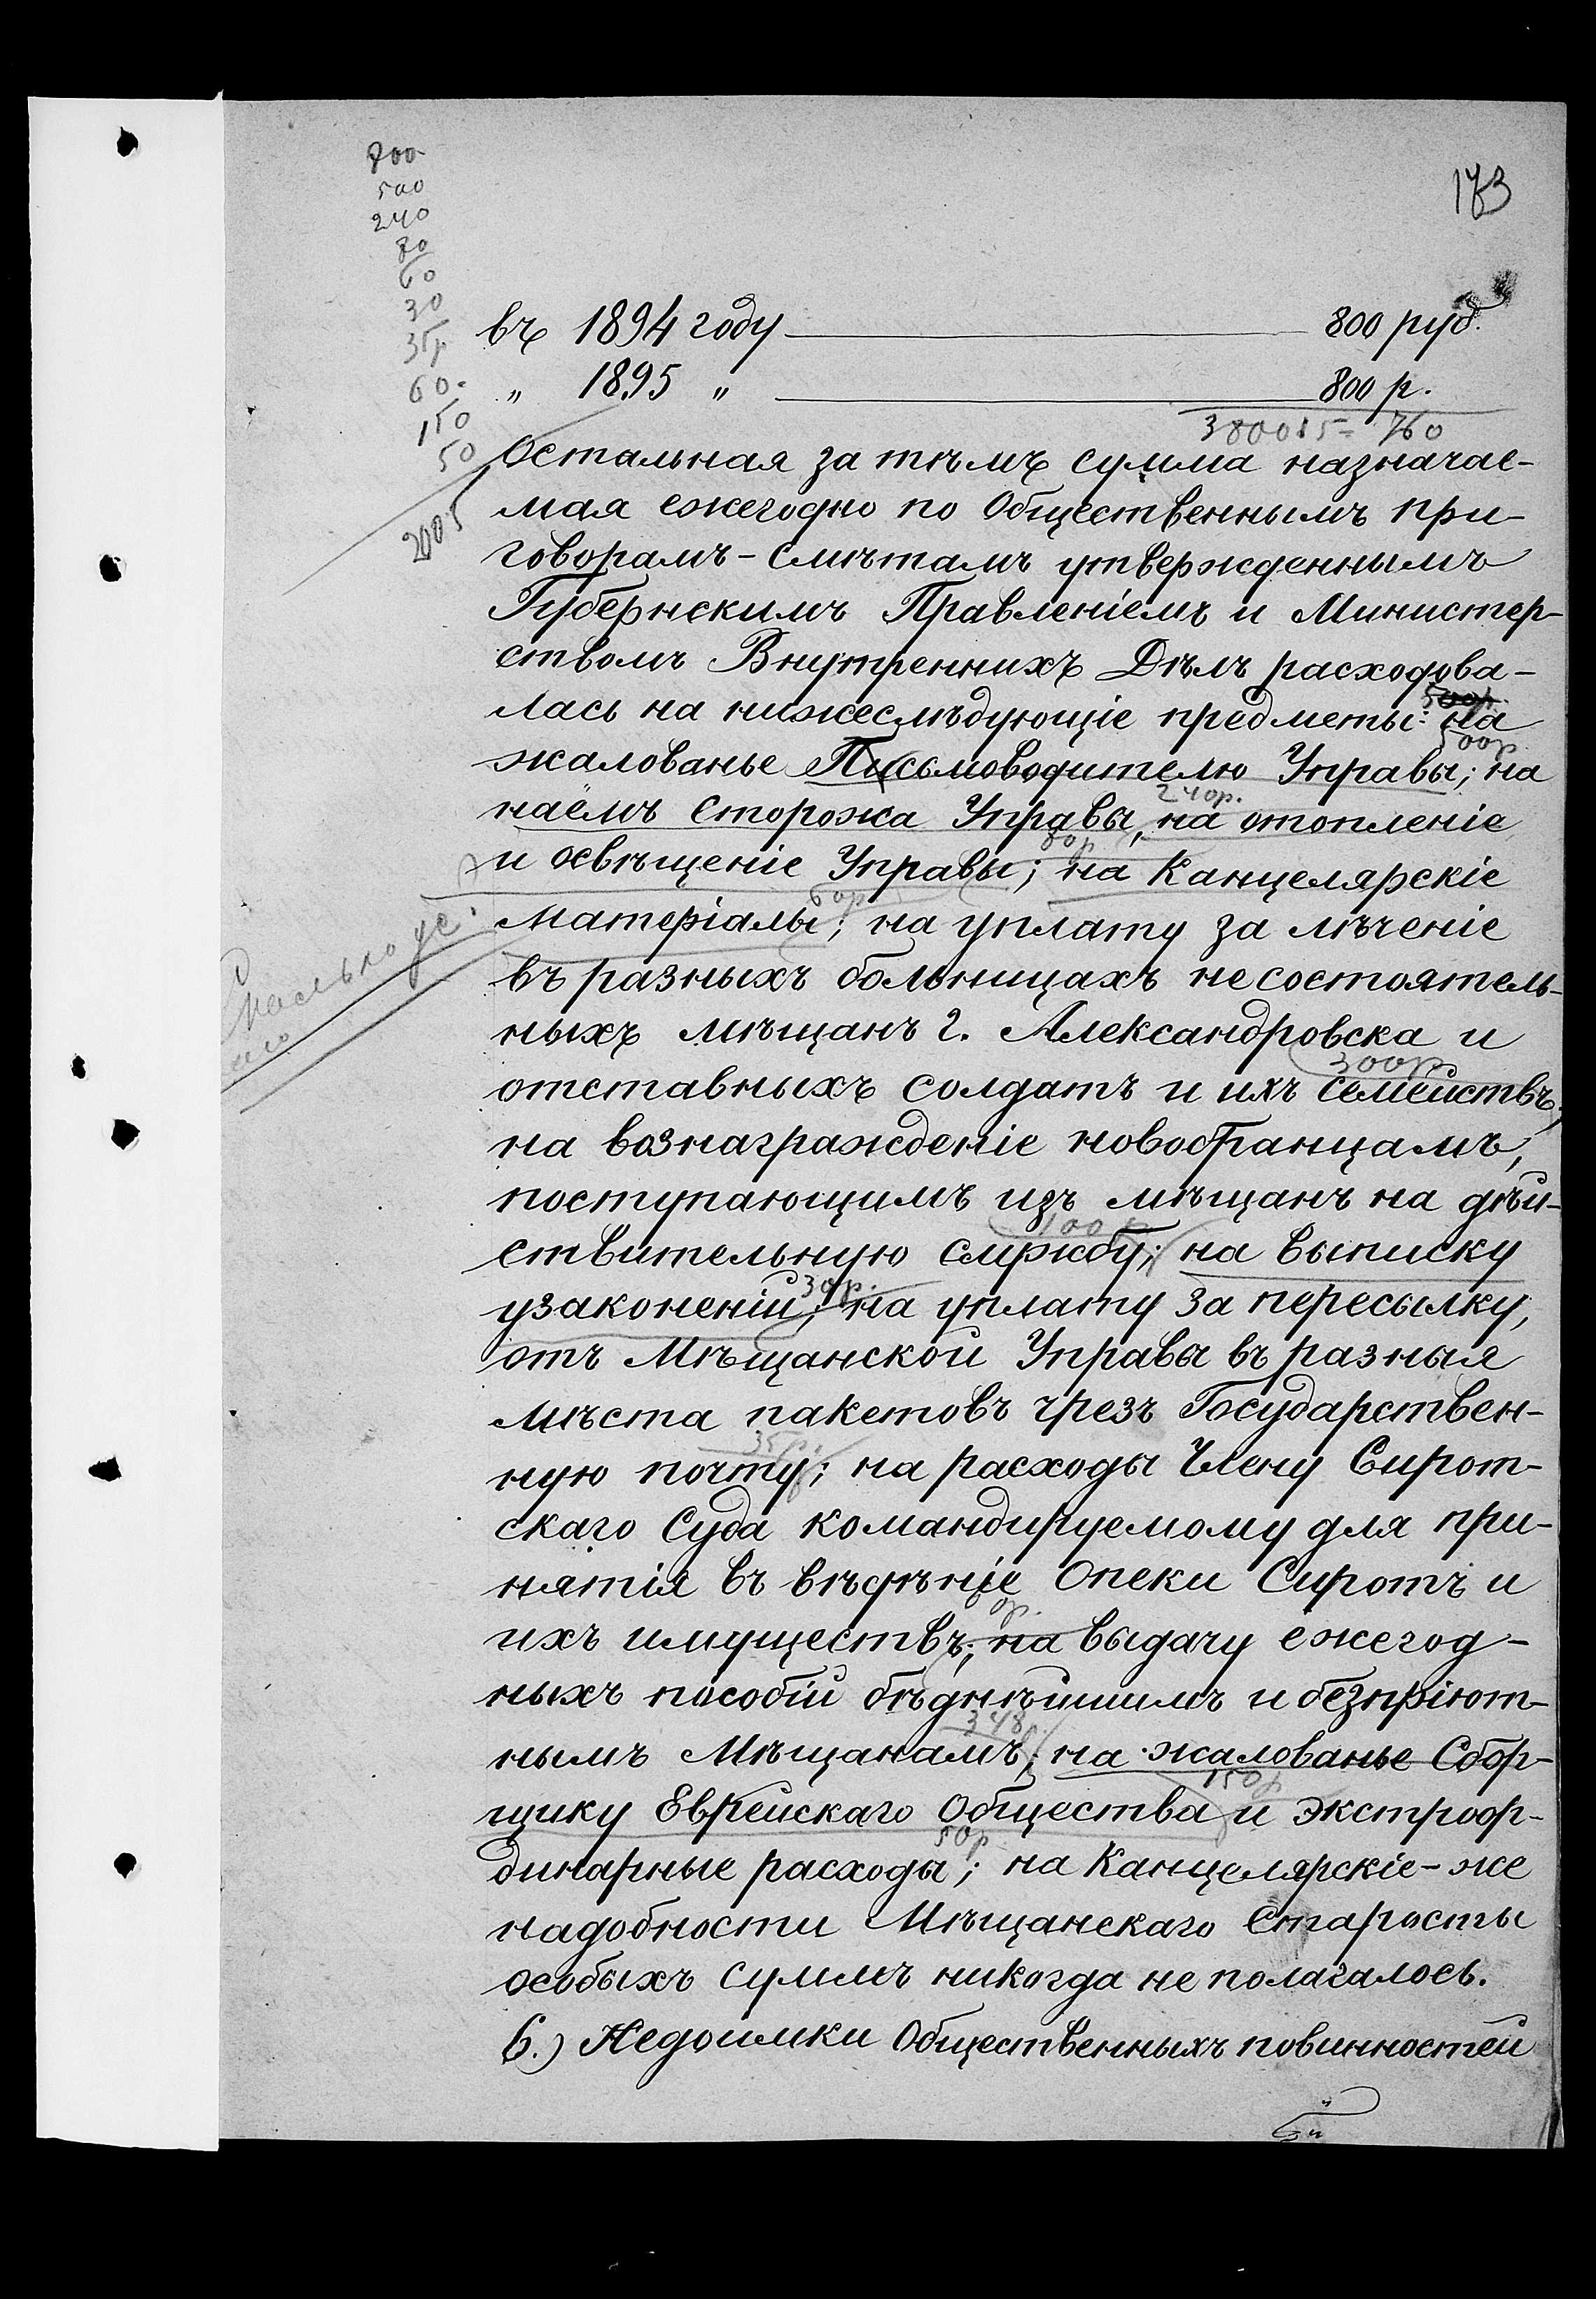 800
500
240
80
60
30
35р
60.
150
50
2005
173
въ 1894 году 800 руб.
" 1895 " 800 р.
3800:5= 760
Остальная за тѣмъ сумма назначае-
мая ежегодно по Общественнымъ при-
говорамъ-смѣтамъ утвержденнымъ
Губернскимъ Правленіемъ и Министер-
ствомъ Внутреннихъ Дѣлъ расходова-
500р.
лась на нижеслѣдующіе предметы: на
500р.
жалованье Письмоводителю Управы; на
240р.
наёмъ Сторожа Управы, на отопленіе
80р
и освѣщеніе Управы; на Канцелярскіе
60р
матеріалы; на уплату за лѣченіе
въ разныхъ больницахъ несостоятель-
ныхъ мѣщанъ г. Александровска и
300р.
отставныхъ солдатъ и ихъ семействъ;
на вознагражденіе новобранцамъ,
поступающимъ изъ мѣщанъ на дѣй-
100р
ствительную службу; на выписку
30р.
узаконеній; на уплату за пересылку,
отъ Мѣщанской Управы въ разныя
мѣста пакетовъ чрезъ Государствен-
35р.
ную почту; на расходы Члену Сирот-
скаго Суда командируемому для при-
нятія въ вѣдѣніе Опеки Сиротъ и
60р.
ихъ имуществъ; на выдачу ежегод-
ныхъ пособій бѣднѣйшимъ и безпріют-
348р.
нымъ Мѣщанамъ; на жалованье Сбор-
150р
щику Еврейскаго Общества и экстроор-
50р
динарные расходы; на Канцелярскіе-же
надобности Мѣщанскаго Старосты
особыхъ суммъ никогда не полагалось.
6.) Недоимки Общественныхъ повинностей